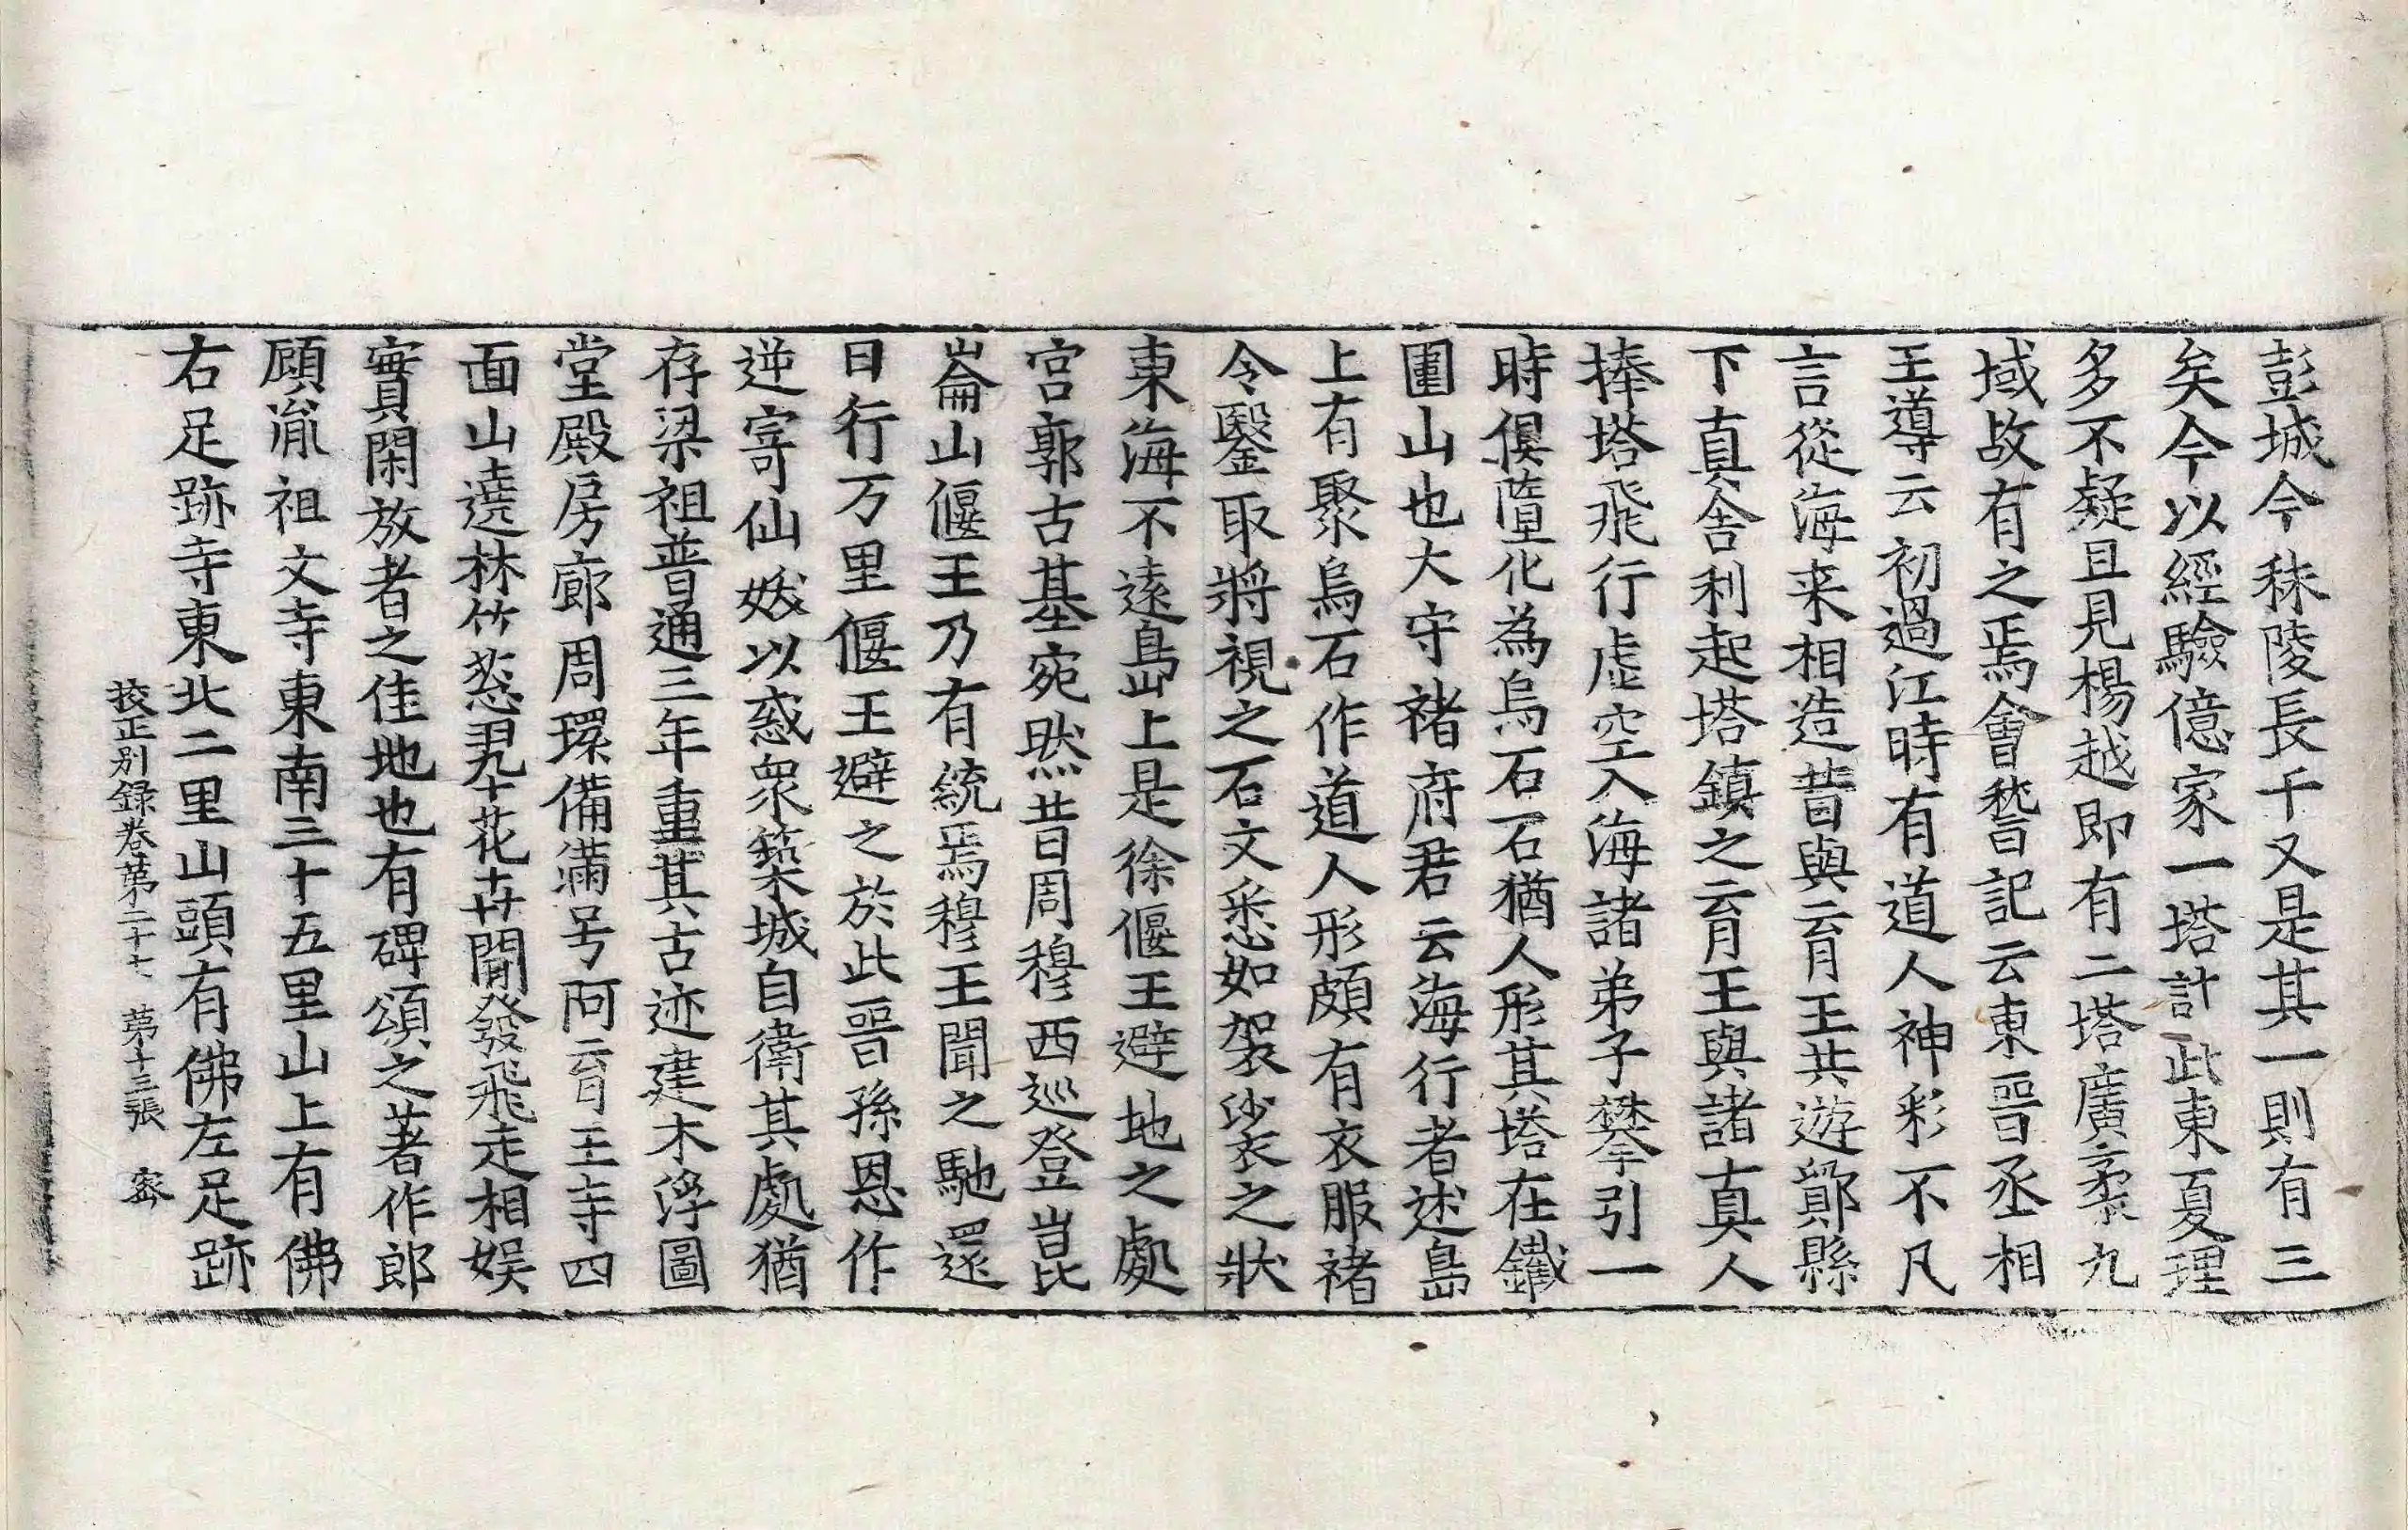 彭城今秣陵長干又是其一則有三
矣今以經驗億家一塔計此東夏理
多不疑且見楊越即有二塔廣素九
域故有之焉會誓記云東晉丞相
王導云初過江時有道人神彩不凡
言從海来相造昔與育王共遊鄮縣
下真舍利起塔鎮之育王與諸真人
捧塔飛行虛空入海諸弟子攀引一
時俱墮化為烏石石猶人形其塔在鐵
圍山也大守褚府君云海行者述島
上有聚烏石作道人形頗有衣服褚
令鑿取將視之石文悉如袈裟之狀
東海不遠島上是徐偃王避地之處
宮郭古基宛然昔周穆西巡登崑
崙山偃王乃有統焉穆王聞之馳還
日行万里偃王避之於此晉孫恩作
逆寄仙妖以惑衆築城自衛其處猶
存梁祖普通三年重其古迹建木浮圖
堂殿房廊周環備滿号阿育王寺四
面山遶林竹葱翠花卉閒發飛走相娱
實閑放者之佳地也有碑頌之著作郎
顧胤祖文寺東南三十五里山上有佛
右足跡寺東北二里山頭有佛左足跡
挍正别録卷苐二十七　苐十三張　密